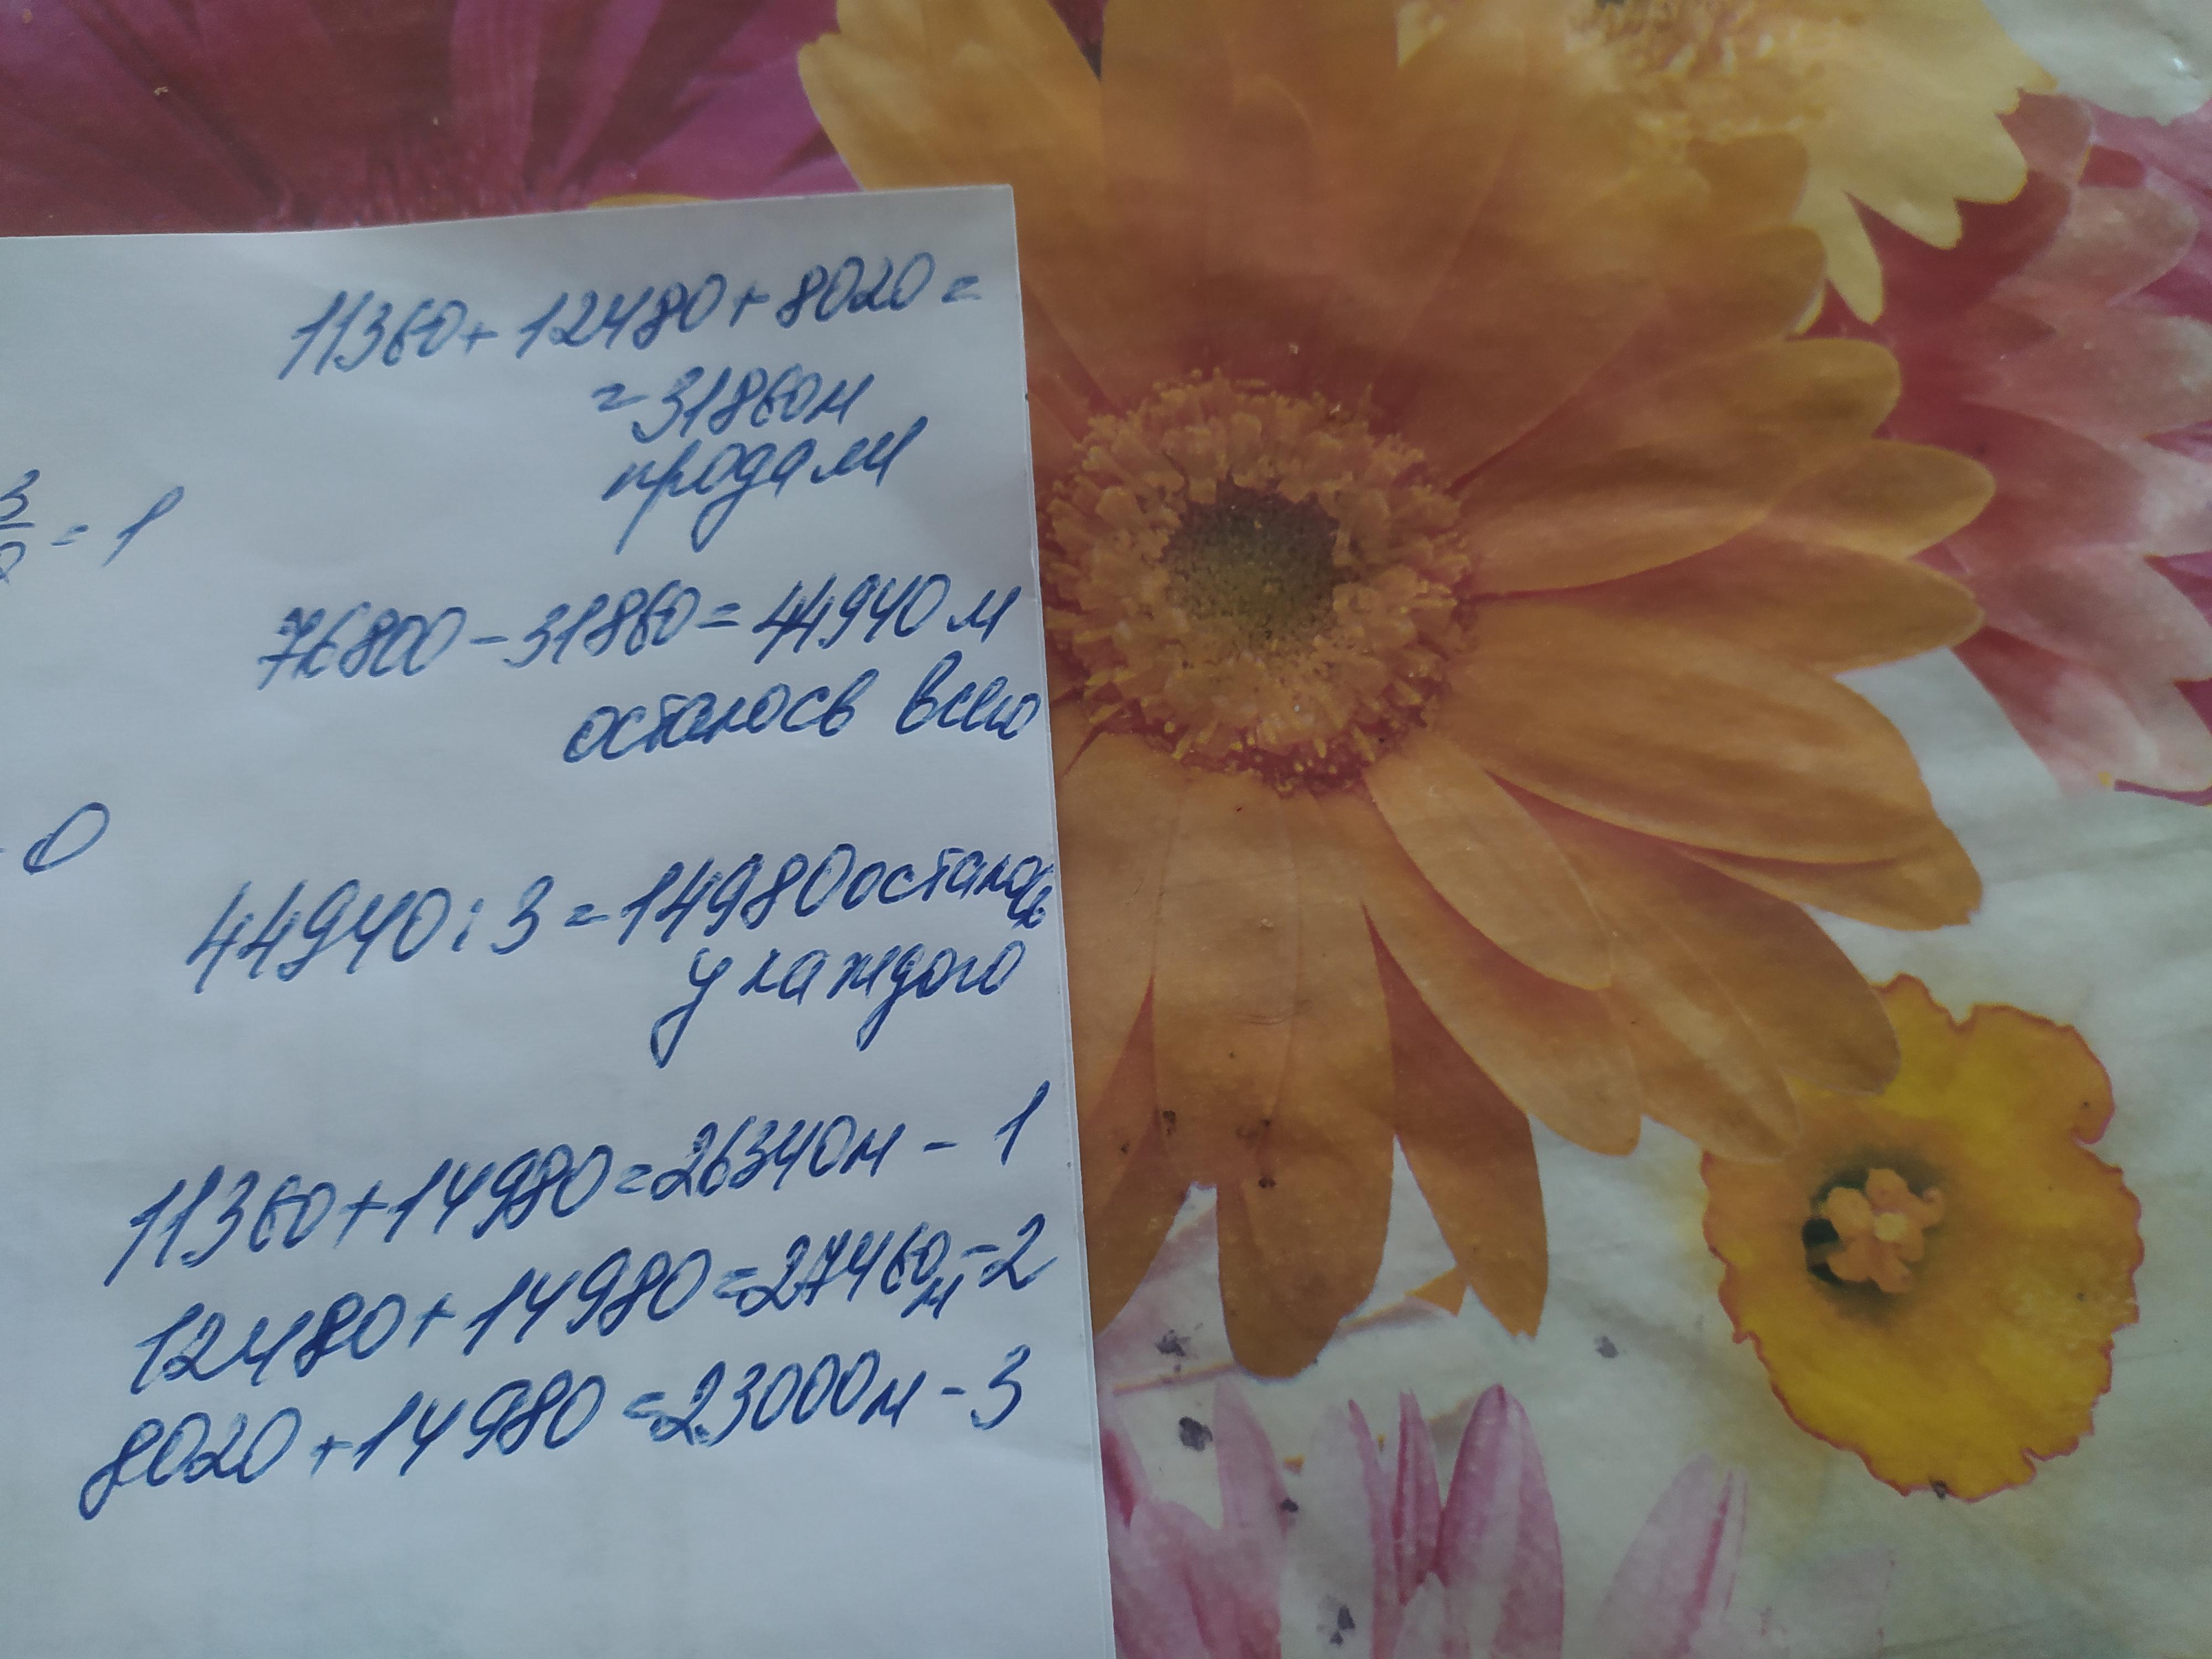 11360+12480+8020=
=31860м
продали
3
= 1
76800-31860=44940 м
осталось всего
0
44940:3=14980 осталось
у каждого
11360+14980=26340м - 1
12480+14980=27460м-2
8020+14980=23000м-3